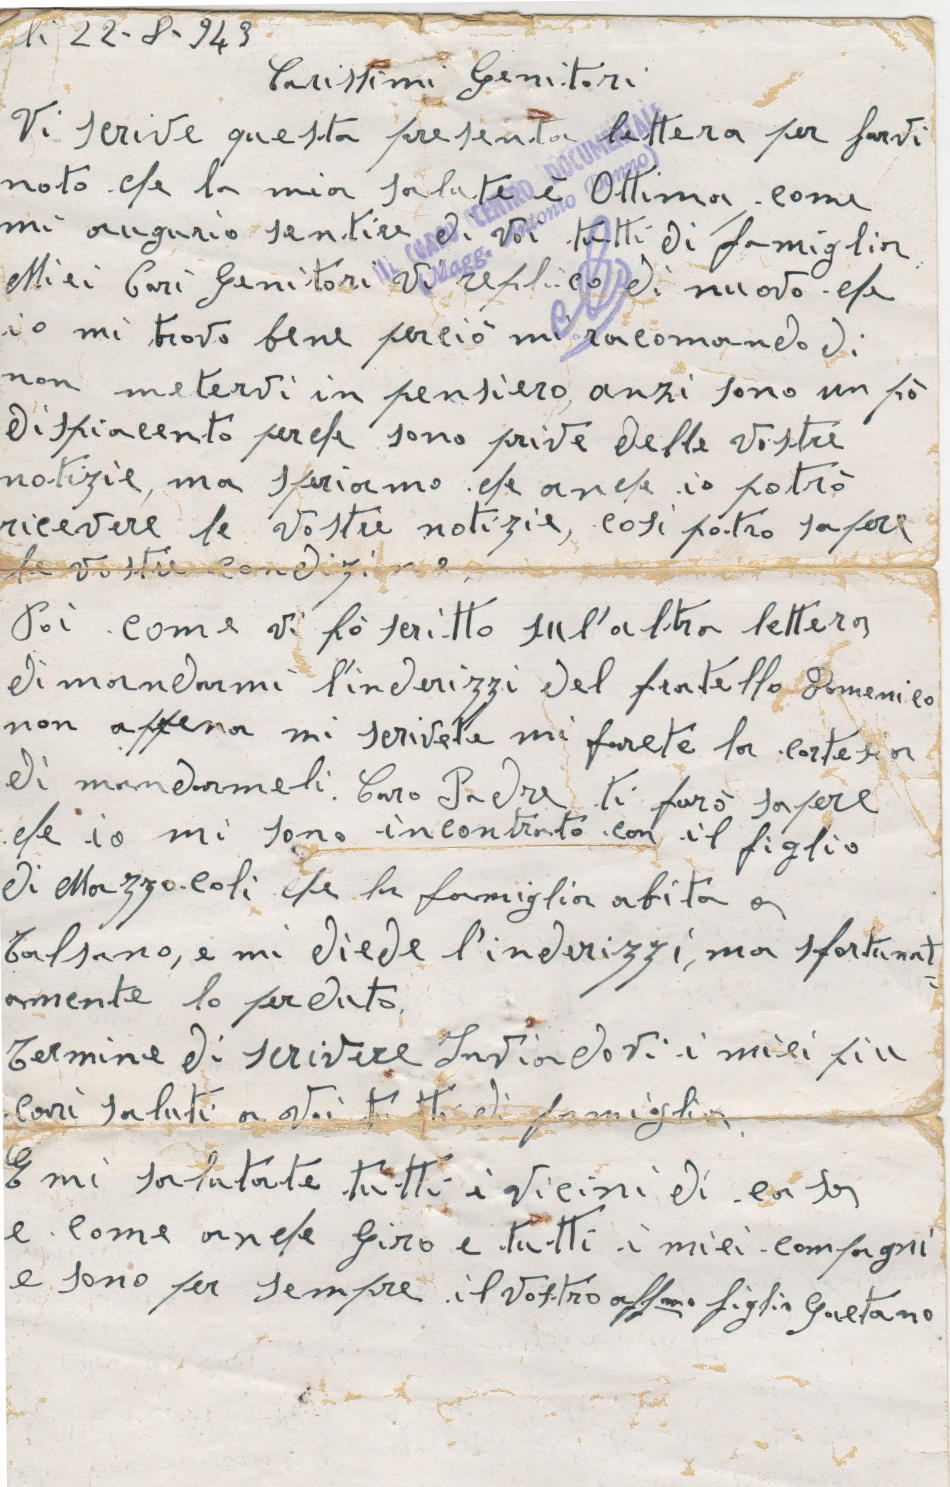 li 22-8-943
Carissimi Genitori
Vi scrive questa presenta lettera per farvi
noto che la mia salute è Ottima come
mi augurio sentire di voi tutti di famiglia
Miei Cari Genitori Vi replico di nuovo che
io mi trovo bene perciò mi racomando di
non metervi in pensiero, anzi sono un pò
dispiacento perche sono prive delle vostre
notizie, ma speriamo che anche io potrò
ricevere le vostre notizie, cosi potro sapere
le vostre condizione.
Poi come vi hò scritto sul'altra lettera
di mandarmi l'inderizzi del fratello Domenico
non appena mi scrivete mi farete la cortesia
di mandarmeli. Caro Padre ti farò sapere
che io mi sono incontrato con il figlio
di Mazzocoli che la famiglia abita a
Talsano, e mi diede l'inderizzi, ma sfortunat
amente lo perduto.
Termine di scrivere Inviadovi i miei piu
cari saluti a voi tutti di famiglia
E mi salutate tutti i vicini di casa
e come anche Giro e tutti i miei compagni
e sono per sempre il vostro affmo figlio Gaetano
IL CAPO CENTRO DOCUMENTALE
(Magg. Antonio Donno)